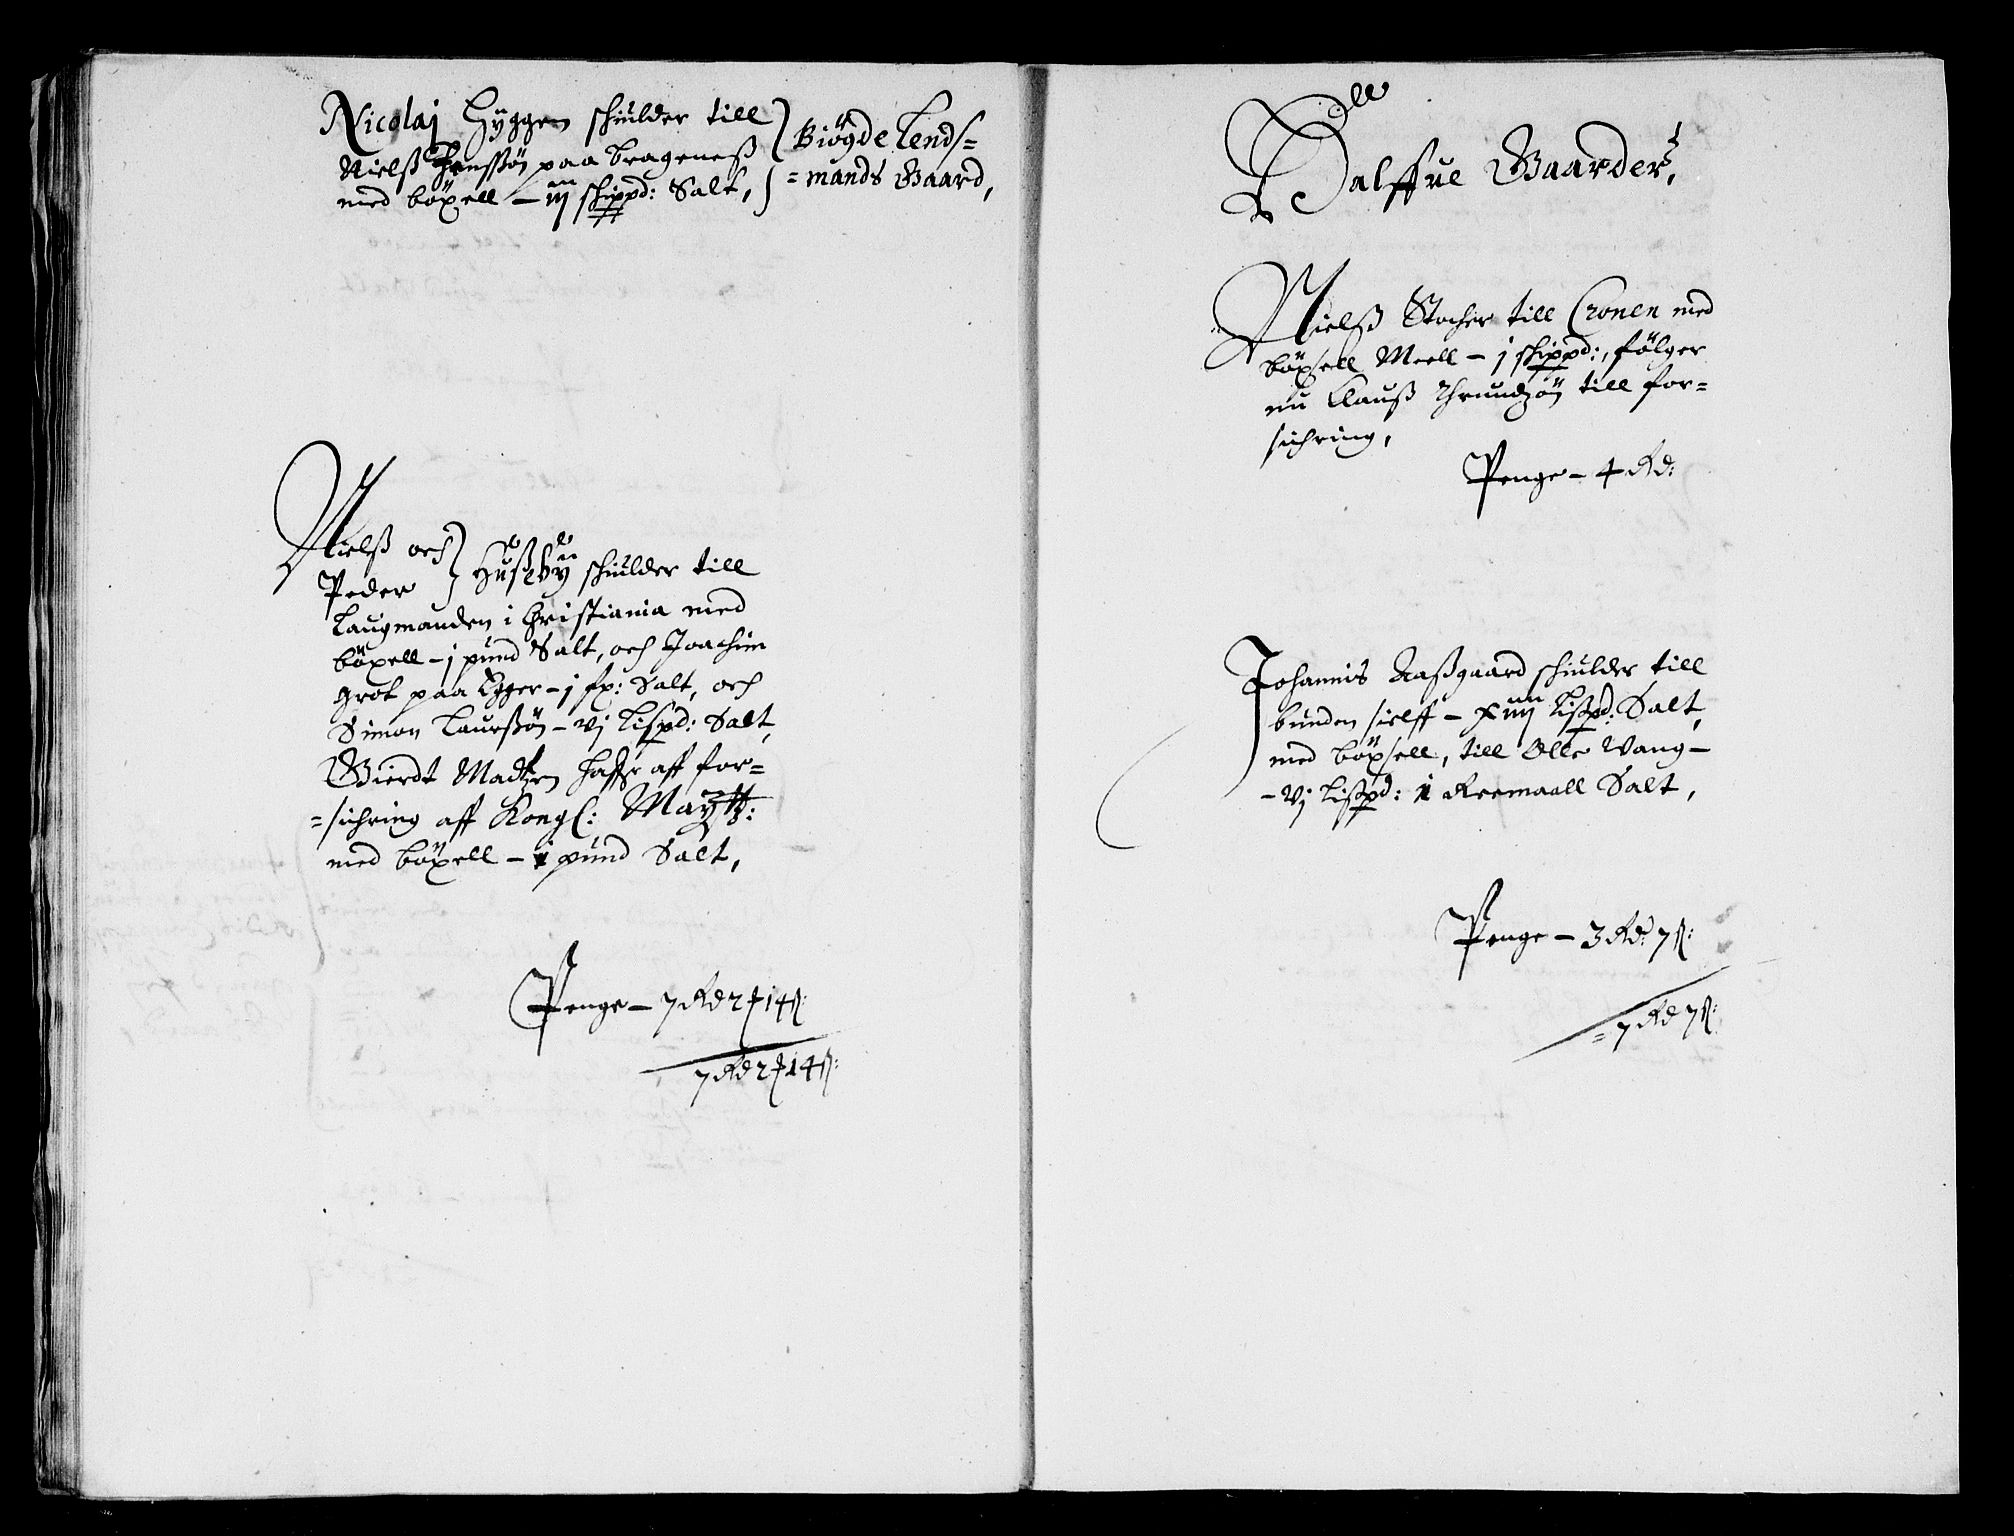 Nicolaj Hyggen schiulder till
Nielß Hanssøn paa Brageneß
med böxell – iij schippd: Salt,
Biögde Lends=
=mands Gaard,
Nielß och
Peder Hußebÿ schiulder till
Laugmanden i Christiania med
böxell – j pund Salt, och Joachim
Grot paa Egger – j fr: Salt, och
Simon Laurßön – vj Lispd: Salt,
Gierdt Madtzen haffr aff for=
=sichring aff Kongl: Maÿtt:
med böxell – j pund Salt,
Penge – 7 Rd 2 ƒ 14 ß:
7 Rd 2 ƒ 14 ß:
Halffue Gaarder,
Nielß Stocher till Cronen med
böxsell Meell – j schippd:, fölger
nu Clauß Thrundzön till for=
sichring,
Penge – 4 Rd:
Johannis Aaßgaard schiulder till
bunden sielff – xiiij Lißpd: Salt,
med böxsell, till Olle Vang –
– vj Lißpd: i Reemaall Salt,
Penge – 3 Rd: 7 ß:
= 7 Rd 7 ß: